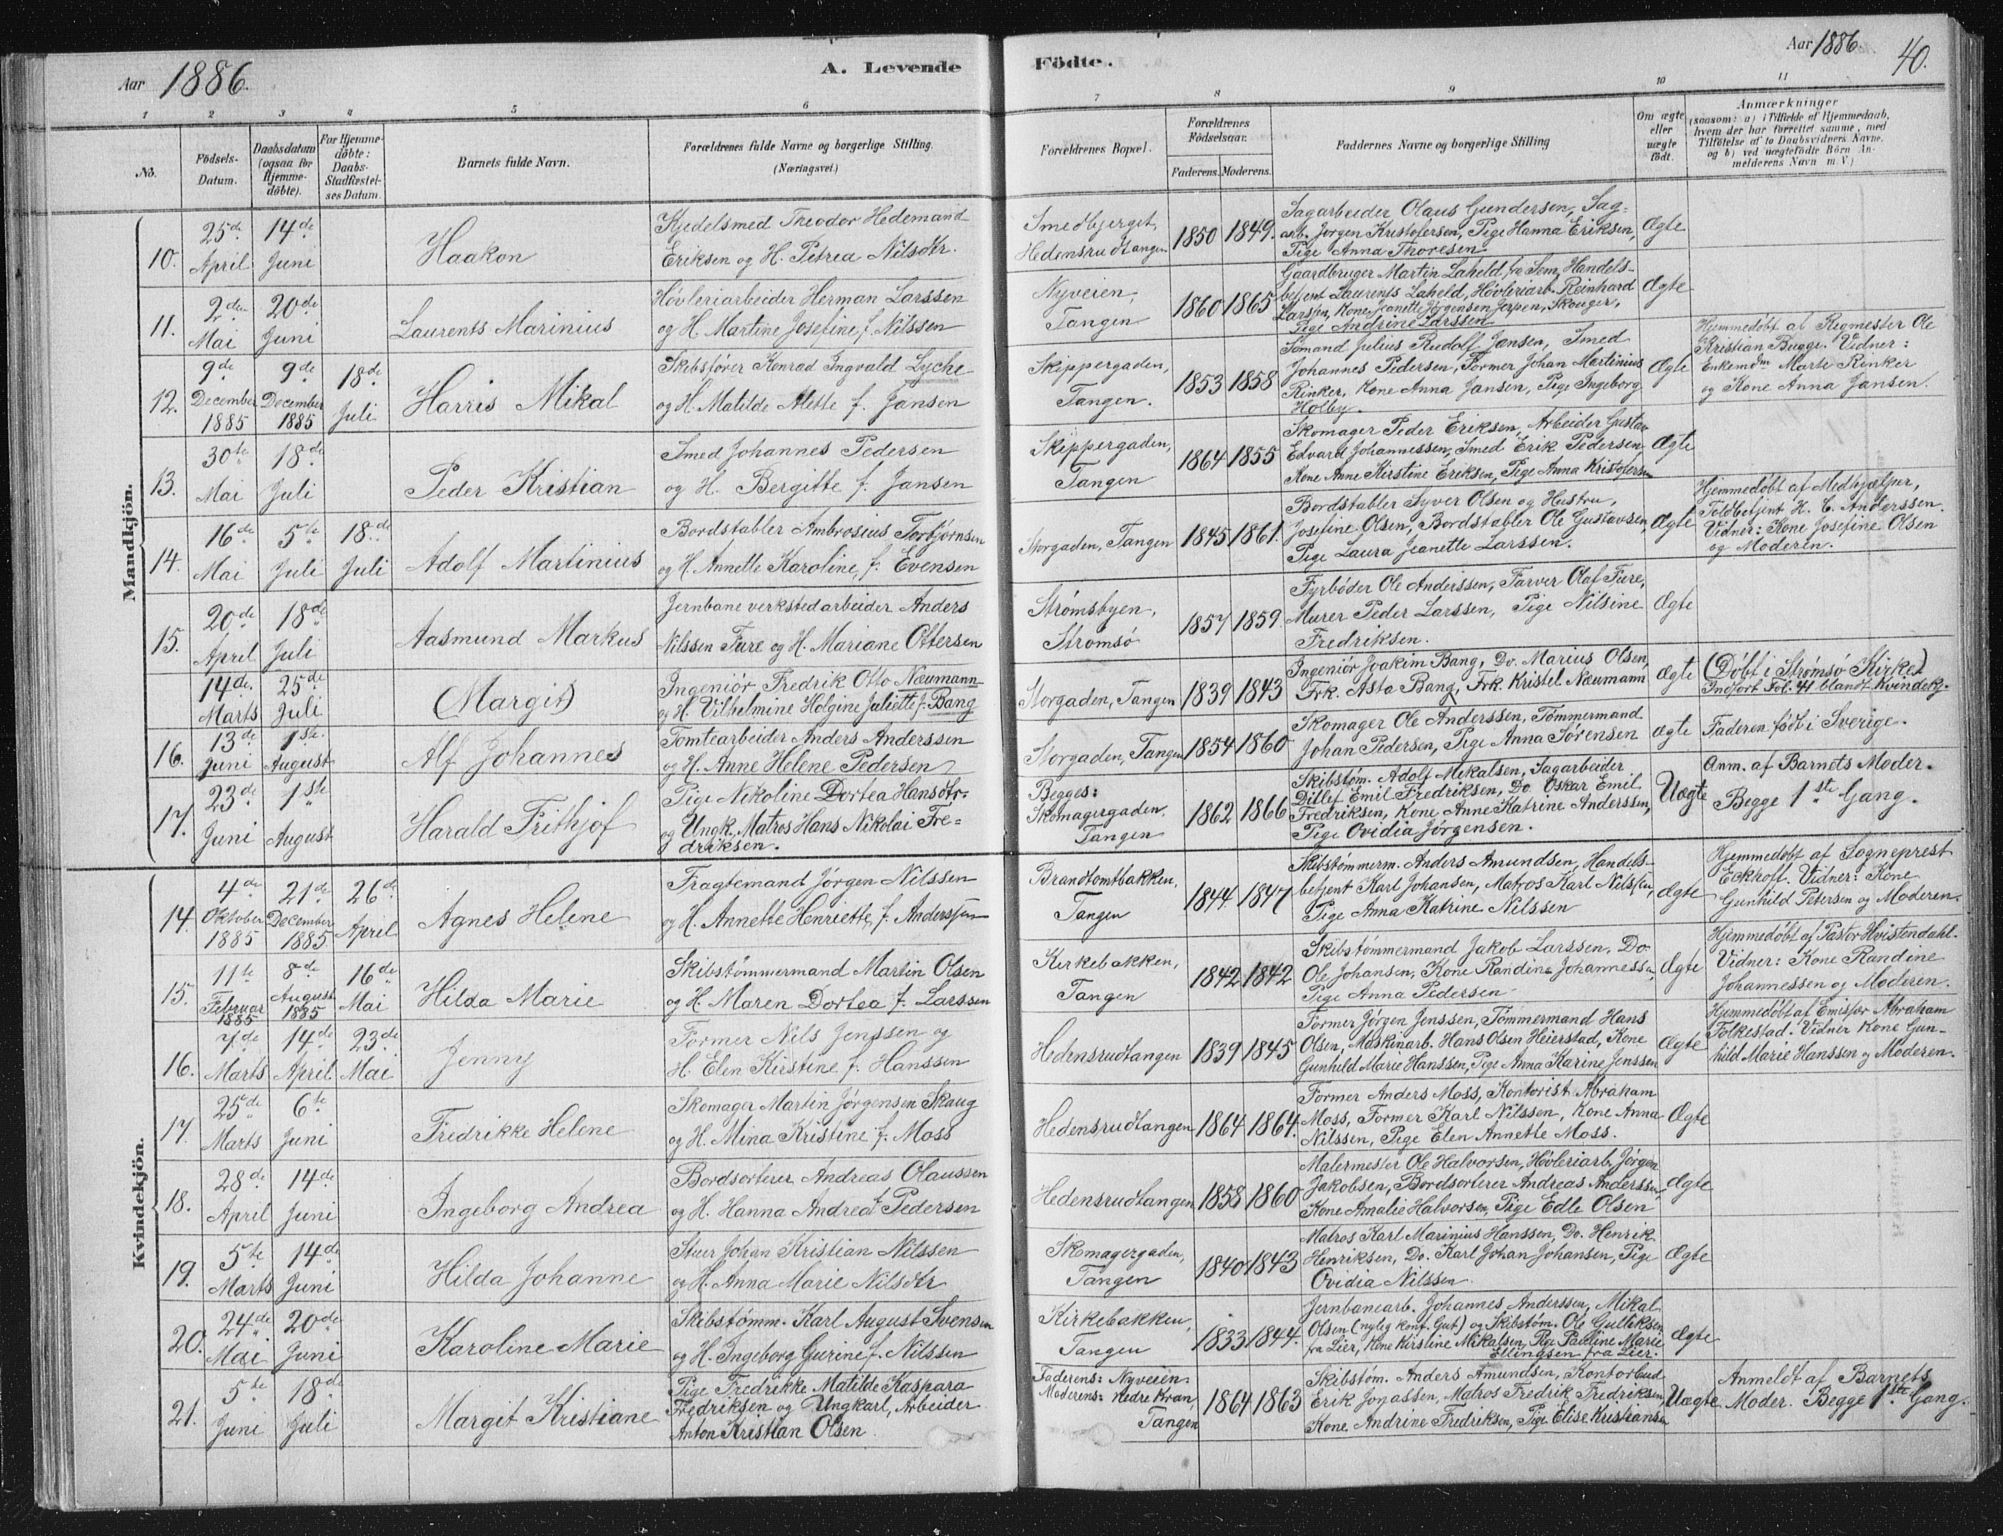 Aar 1886. A. Levende Födte. Aar 1886. 40.
1 2 3 4 5 6 7 8 9 10 11
No. Födsels-Datum. Daabsdatum (ogsaa for Hjemmedöbte). For Hjemmedöbte: Daabs-Stadfæstelses Datum. Barnets fulde Navn. Forældrenes fulde Navne og borgerlige Stilling. (Næringsvei.) Forældrenes Bopæl. Forældrenes Födselsaar. Faderens. Moderens. Faddernes Navne og borgerlige Stilling Om ægte eller uægte födt. Anmærkninger (saasom: a) i Tilfælde af Hjemmedaab, hvem der har forrettet samme, med Tilföielse af to Daabsvidners Navne, og b) ved uægtefödte Börn Anmelderens Navn m. V.)
Mandkjön.
10. 25de April 14de Juni Haakon Kjedelsmed Theodor Hedemand Eriksen og H. Petrea Nilsdtr. Smedbjerget, Hedensrudtangen 1850 1849. Sagarbeider Olaus Gundersen, Sagarb. Jørgen Kristofersen, Pige Hanna Eriksen, Pige Anna Thoresen Ægte
11. 2den Mai 20de Juni Laurents Marinius Høvleriarbeider Herman Larssen og H. Martine Josefine, f. Nilssen Nyveien, Tangen 1860 1865 Gaardbruger Martin Laheld, fra Sem, Handelsbetjent Laurents Laheld, Høvleriarb. Reinhard Larssen, Kone Jeanette Jørgensen Jerpen, Skouger, Pige Andrine Larssen Ægte
12. 9de December 1885 9de December 1885 18de Juli Harris Mikal Skibsfører Konrad Ingvald Lyche og H. Matilde Alette f. Jansen Skippergaden, Tangen. 1853 1858 Sømand Julius Rudolf Jansen, Smed Johannes Pedersen, Former Johan Martinius Rinker, Kone Anna Jansen, Pige Ingeborg Holby. Ægte Hjemmedøbt af Regmester Ole Kristian Bugge. Vidner: Enkemdm Marte Rinker og Kone Anna Jansen.
13. 30te Mai 18de Juli Peder Kristian Smed Johannes Pedersen og H. Bergitte f. Jansen Skippergaden, Tangen 1864 1855 Skomager Peder Eriksen, Arbeider Gustav Edvard Johannessen, Smed Erik Pedersen, Kone Anne Kirstine Eriksen, Pige Anna Kristofersen Ægte
14. 16de Mai 5te Juli 18de Juli Adolf Martinius Bordstabler Ambrosius Torbjørnsen og H. Annette Karoline, f. Evensen Storgaden, Tangen 1845 1861. Bordstabler Syver Olsen og Hustru, Josefine Olsen, Bordstabler Ole Gustavsen, Pige Laura Jeanette Larssen. Ægte Hjemmedøbt af Medhjælper, Toldbetjent K. E. Anderssen. Vidner: Kone Josefine Olsen og Moderen.
15. 20de April 18de Juli Aasmund Markus Jernbaneverkstedarbeider Anders Nilssen Fure og H. Mariane Ottersen Strømsbyen, Strømsø 1857 1859. Fyrbøder Ole Anderssen, Farver Olaf Fure, Murer Peder Larssen, Pige Nilsine Fredriksen. Ægte
14de Marts 25de Juli (Margit) Ingeniør Fredrik Otto Neumann og H. Vilhelmine Holgine Juliette f. Bang Storgaden, Tangen 1839 1843 Ingeniör Joakim Bang, Do. Marius Olsen, Frk. Asta Bang, Frk Kristel Neumann ægte (Døbt i Strømsø Kirke) Indført Fol. 41 blandt Kvindekj.
16. 13de Juni 1ste August Alf Johannes Tomtearbeider Anders Anderssen og H. Anne Helene Pedersen Storgaden, Tangen 1854 1860 Skomager Ole Anderssen, Tømmermand Johan Pedersen, Pige Anna Sørensen ægte Faderen født i Sverige.
17. 23de Juni 1ste August Harald Frithjof Pige Nikoline Dortea Hansdtr. og Ungk. Matros Hans Nikolai Fredriksen. Begges: Skomagergaden, Tangen 1862 1866 Skibstøm. Adolf Mikalsen, Sagarbeider Ditlef Emil Fredriksen, Do. Oskar Emil Fredriksen, Kone Anne Katrine Anderssen, Pige Ovidia Jørgensen. Uægte Anm. af Barnets Moder. Begge 1ste Gang.
Kvindekjön.
14. 4de Oktober 1885 21de December 1885 26de April Agnes Helene Fragtemand Jørgen Nilssen og H. Annette Henriette, f. Anderssen Brandtomtbakken, Tangen 1844 1847 Skibstømmerm. Anders Amundsen, Handelsbetjent Karl Johansen, Matros Karl Nilssen, Pige Anna Katrine Nilssen Ægte Hjemmedøbt af Sogneprest Eckhoff. Vidner: Kone Gunhild Petersen og Moderen.
15. 11te Februar 1885 8de August 1885 16de Mai Hilda Marie Skibstømmermand Martin Olsen og H. Maren Dortea f. Larssen Kirkebakken, Tangen 1842 1842 Skibstømmermand Jakob Larssen, Do Ole Johansen, Kone Randine Johannessen, Pige Anna Pedersen. Ægte Hjemmedøbt af Pastor Hvistendahl. Vidner: Kone Randine Johannessen og Moderen.
16. 7de Marts 14de April 23de Mai Jenny Former Nils Jenssen og H. Elen Kirstine f. Hanssen Hedensrudtangen 1839 1845 Former Jørgen Jenssen, Tømmermand Hans Olsen, Maskinarb. Hans Olsen Heierstad, Kone Gunhild Marie Hanssen, Pige Anna Karine Jenssen Ægte Hjemmedøbt af Emissær Abraham Folkestad. Vidner Kone Gunhild Marie Hanssen og Moderen.
17. 25de Marts 6te Juni Fredrikke Helene Skomager Martin Jørgensen Skaug og H. Mina Kristine f. Moss Hedensrudtangen 1864 1864. Former Anders Moss, Kontorist Abraham Moss, Former Karl Nilssen, Kone Anna Nilssen, Pige Elen Annette Moss. Ægte
18. 28de April 14de Juni Ingeborg Andrea Bordsorterer Andreas Olaussen og H. Hanna Andrea f. Pedersen Hedensrudtangen 1858 1860 Malermester Ole Halvorsen, Høvleriarb. Jørgen Jakobsen, Bordsorterer Andreas Anderssen, Kone Amalie Halvorsen, Pige Edle Olsen Ægte
19. 5te Marts 14de Juni Hilda Johanne Stuer Johan Kristian Nilssen og H. Anna Marie Nilsdtr Skomagergaden, Tangen 1840 1843 Matros Karl Marinius Hanssen, Do. Henrik Henriksen, Do. Karl Johan Johansen, Pige Ovidia Nilssen. Ægte
20. 24de Mai 20de Juni Karoline Marie Skibstømm. Karl August Svensen og H. Ingeborg Gurine f. Nilssen Kirkebakken, Tangen 1833 1844. Jernbanearb. Johannes Anderssen, Mikal Olsen (nylig konf. Gut) og Skibstøm. Ole Gulliksen fra Lier, Kone Kirstine Mikalsen, Pige Pauline Marie Ellingsen fra Lier. Ægte
21. 5te Juni 18de Juli Margit Kristiane Pige Fredrikke Matilde Kaspara Fredriksen og Ungkarl, Arbeider Anton Kristian Olsen. Faderens: Nyveien Moderens: Nedre Kran, Tangen 1864 1863 Skibstøm. Anders Amundsen, Kontorbud Erik Jonassen, Matros Fredrik Fredriksen, Kone Andrine Fredriksen, Pige Elise Kristiansen Uægte Anmeldt af Barnets Moder. Begge 1ste Gang.